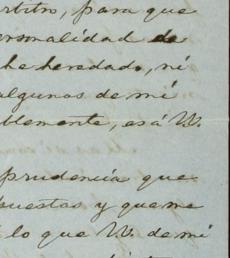 rbitro, para que
ersonalidad de
he heredado, ni
algunos de mi
blemente, es á V.
prudencia que
puestas y que me
lo que V. de mi